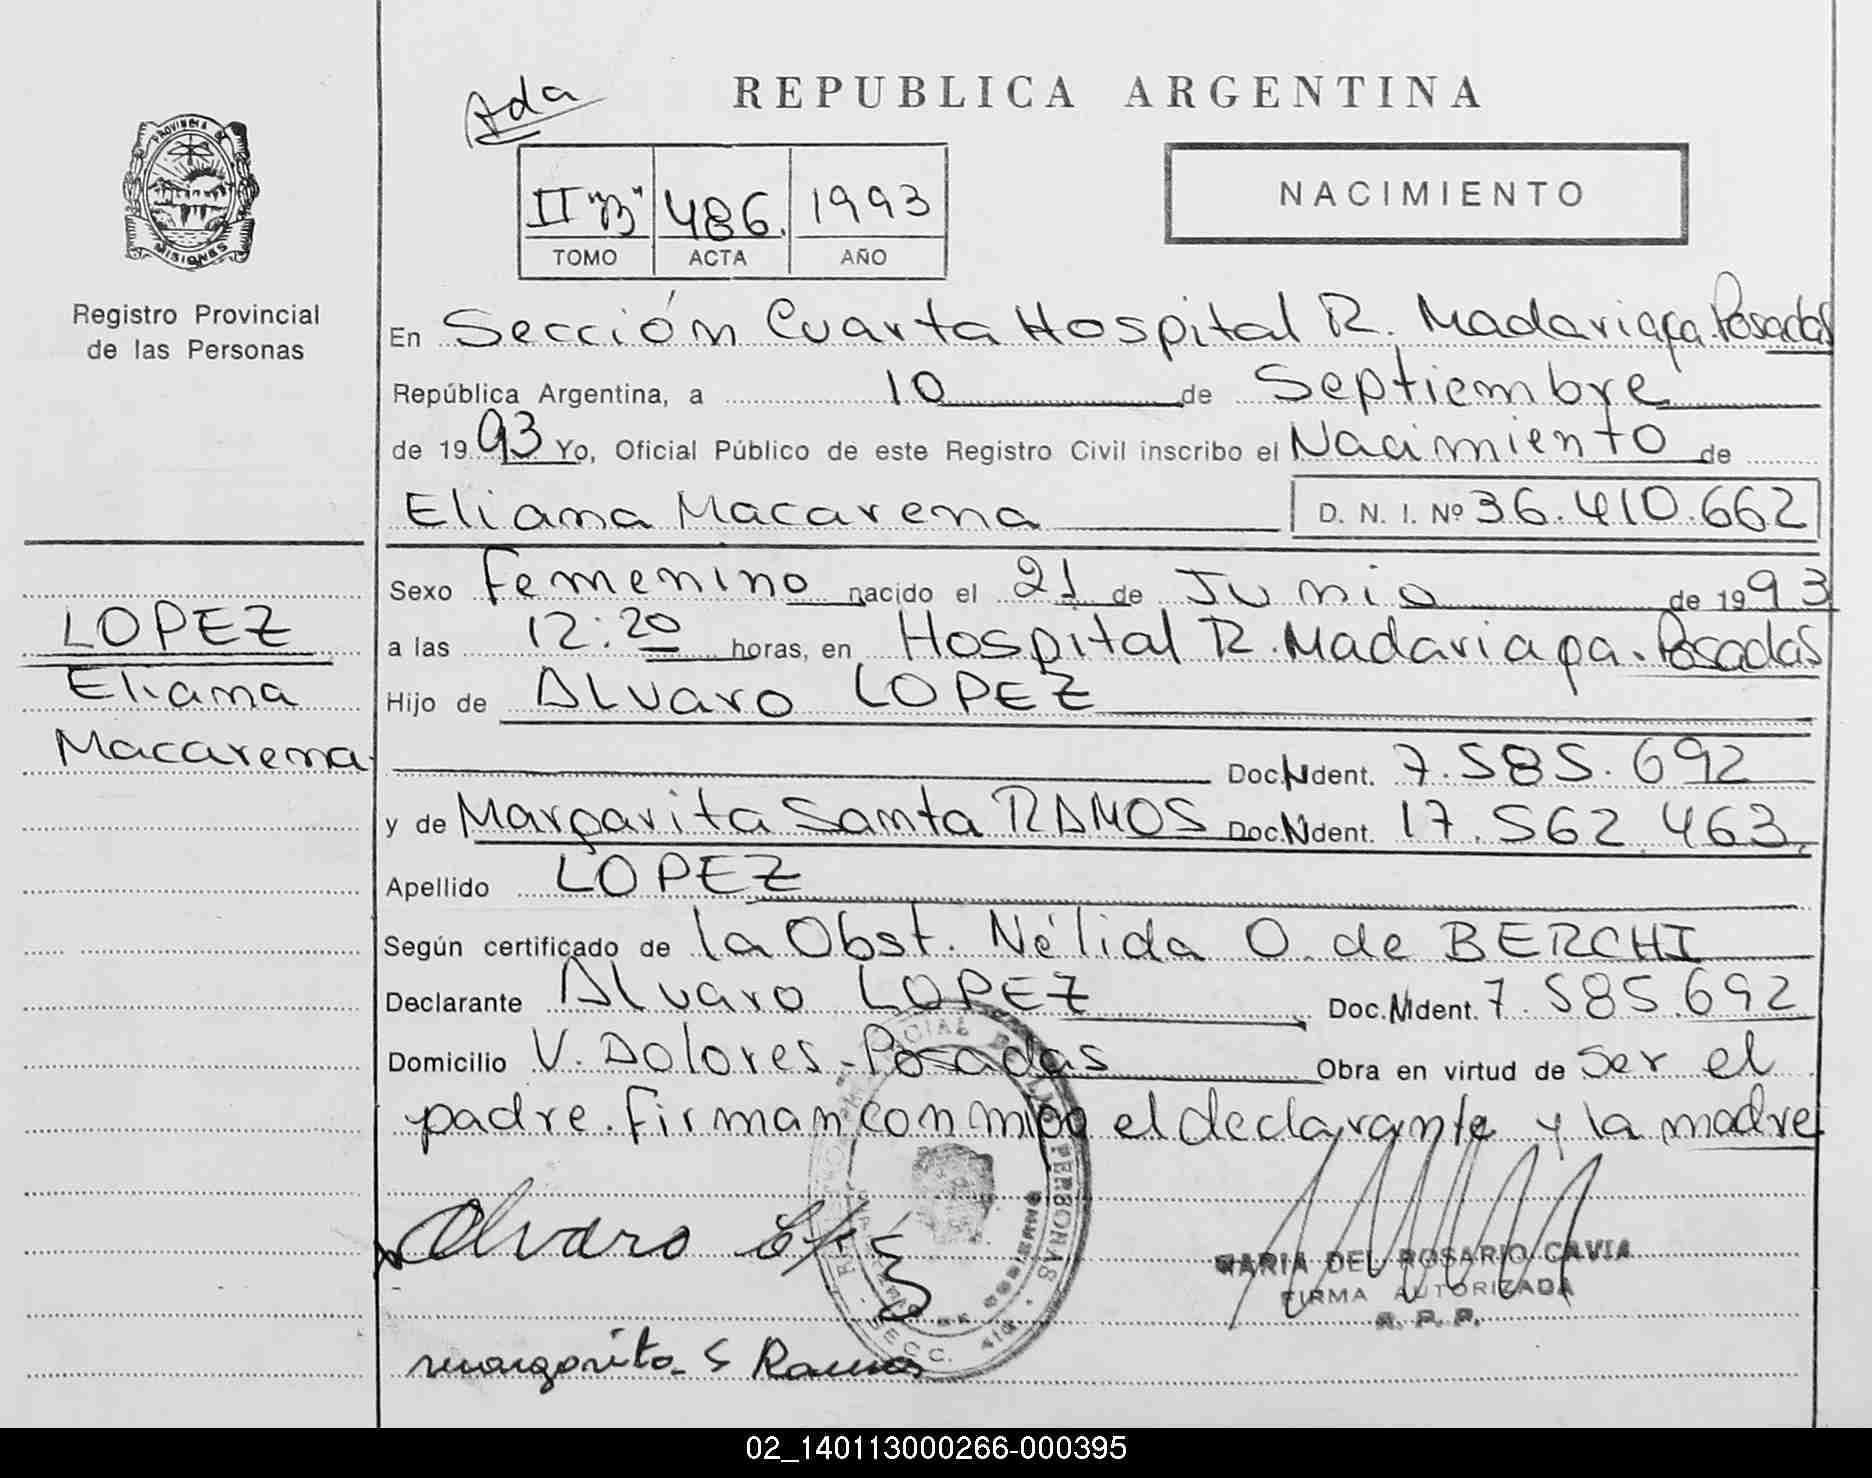 Ada
REPUBLICA ARGENTINA
PROVINCIA DE
MISIONES
II "B" 486. 1993
TOMO ACTA AÑO
NACIMIENTO
Registro Provincial
de las Personas
LOPEZ
Eliana
Macarena
En Sección Cuarta Hospital R. Madariaga. Posadas
República Argentina, a 10 de Septiembre
de 1993 Yo, Oficial Público de este Registro Civil inscribo el Nacimiento de
Eliana Macarena D. N. I. Nº 36.410.662
Sexo Femenino nacido el 21 de Junio de 1993
a las 12:20 horas, en Hospital R. Madariaga. Posadas
Hijo de Alvaro LOPEZ
Doc. Ident. 7.585.692
y de Margarita Santa RAMOS Doc. Ident. 17.562.463.
Apellido LOPEZ
Según certificado de la Obst. Nélida O. de BERCHI
Declarante Alvaro LOPEZ Doc. Ident. 7.585.692
Domicilio V. Dolores - Posadas Obra en virtud de ser el
padre. firman conmigo el declarante y la madre
Alvaro López
MARIA DEL ROSARIO CAVIA
FIRMA AUTORIZADA
R. P. P.
PERSONAS
SECC.
margarita S Ramos
02_140113000266-000395